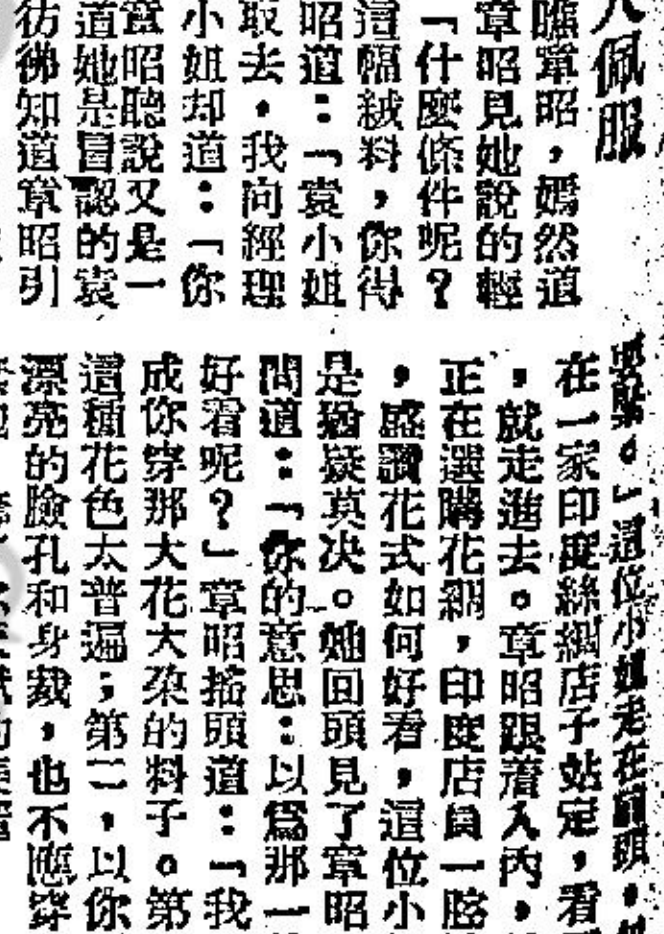 人佩服
瞧章昭，嫣然道
章昭見她說的輕
「什麼條件呢？
這幅絨料，你得
昭道：「袁小姐
取去，我向經理
小姐却道：「你
章昭聽說又是一
道她是冒認的袁
彷彿知道章昭引
要緊。」這位小姐走在前頭，
在一家印度絲綢店子站定，看
，就走進去。章昭跟着入內，
正在選購花綢，印度店員一
，盛讚花式如何好看，這位小
是猶疑莫决。她回頭見了章昭
問道：「你的意思：以爲那一
好看呢？」章昭搖頭道：「我
成你穿那大花大朶的料子。第
這種花色太普遍；第二，以你
漂亮的臉孔和身裁，也不應穿